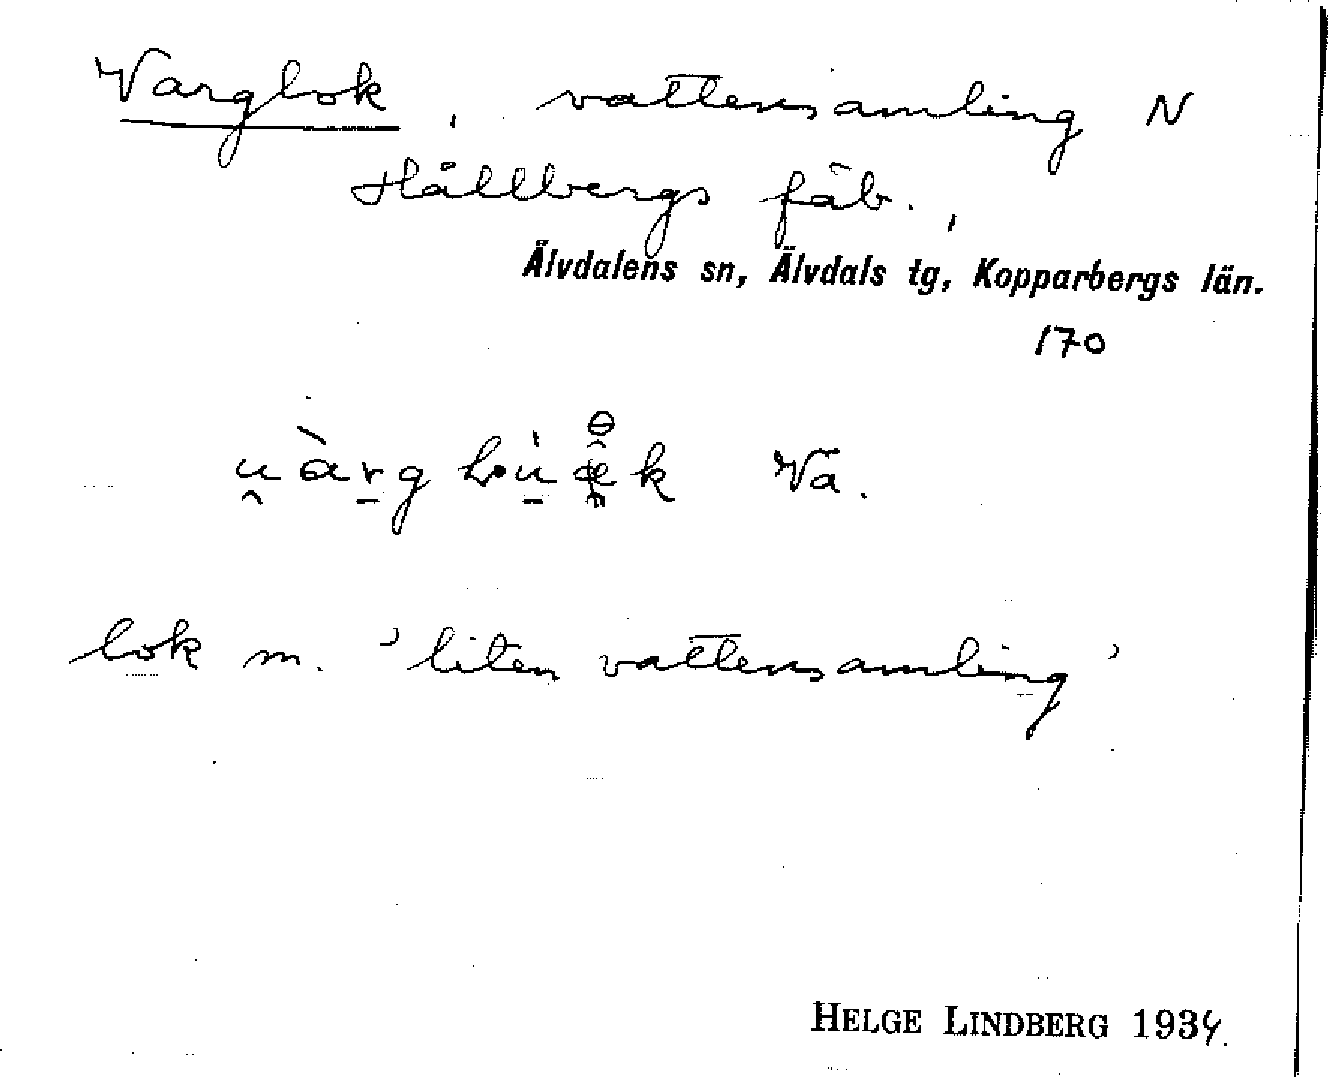 Varglok, vattensamling N
Hållbergs fäb.,
Älvdalens sn, Älvdals tg, Kopparbergs län.
170
Vä.
lok m. 'liten vattensamling'
HELGE LINDBERG 1934.